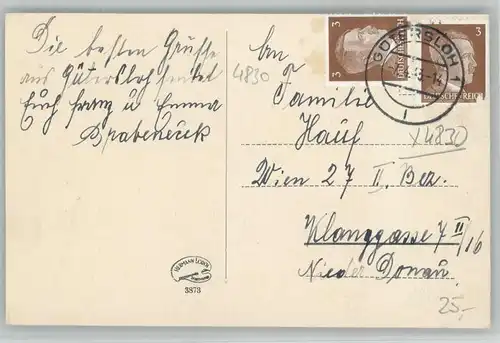 Die besten Grüsse
aus Gütersloh sendet
Euch Franz u Emma
An
Familie
Hauf
Wien 27 II. Bez.
Klanggasse 7 II/16
Nieder Donau
4830
x4830
25,-
3
3
DEUTSCHES REICH
DEUTSCHES REICH
GÜTERSLOH 1
3873